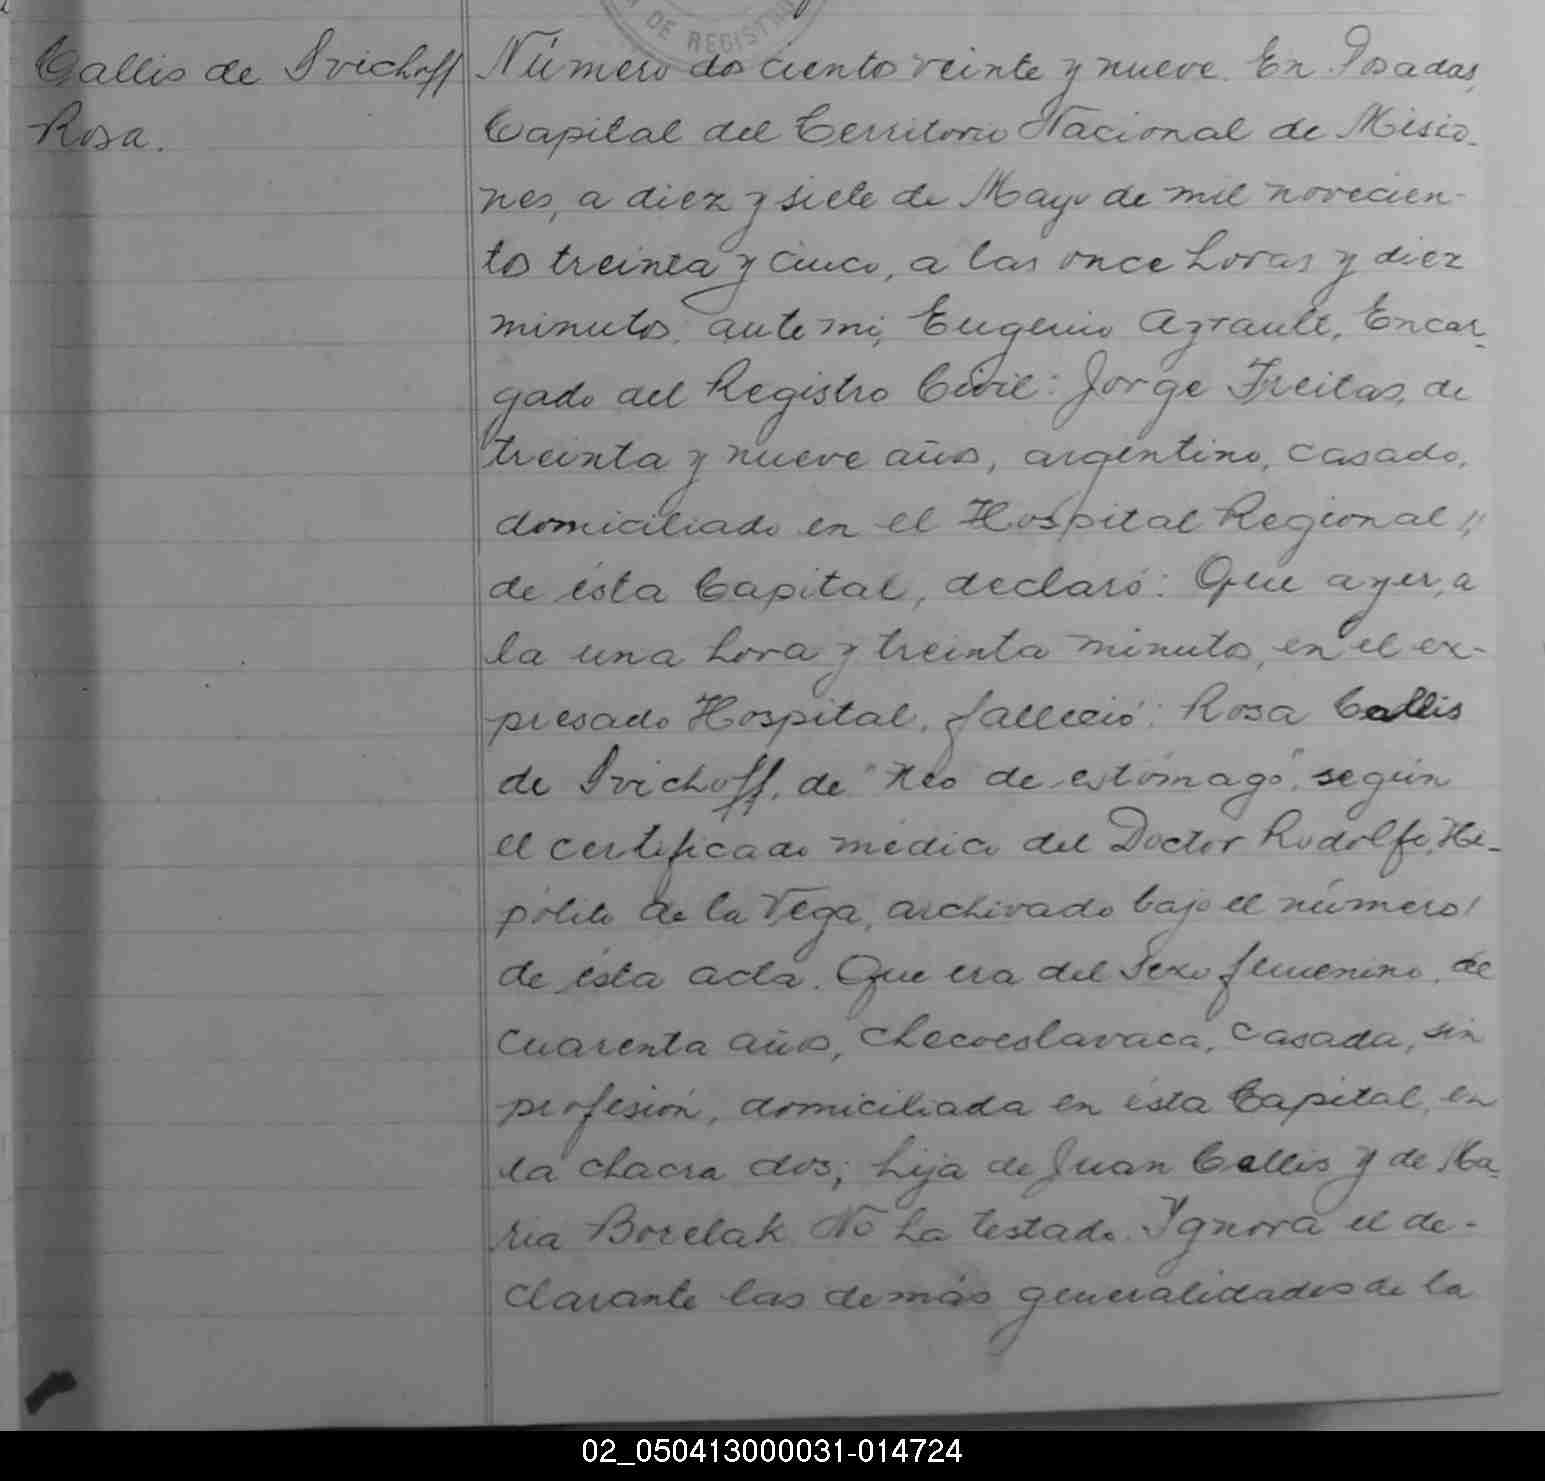 DE REGISTR
Callis de Svichoff
Rosa.
Número doscientos veinte y nueve. En Posadas,
Capital del Territorio Nacional de Misio-
nes, a diez y siete de Mayo de mil novecien-
tos treinta y cinco, a las once horas y diez
minutos, ante mi, Eugenio Ayrault, Encar-
gado del Registro Civil: Jorge Freitas, de
treinta y nueve años, argentino, casado,
domiciliado en el Hospital Regional //
de ésta Capital, declaró: Que ayer, a
la una hora y treinta minutos, en el ex-
presado Hospital, falleció: Rosa Callis
de Svichoff, de "Neo de estómago", según
el certificado médico del Doctor Rodolfo Hi-
pólito de la Vega, archivado bajo el número/
de ésta acta. Que era del Sexo femenino, de
cuarenta años, checoeslavaca, casada, sin
profesión, domiciliada en ésta Capital, en
la chacra dos; hija de Juan Callis y de Ma-
ria Borelak. No ha testado. Ygnora el de-
clarante las demás generalidades de la
02_050413000031-014724